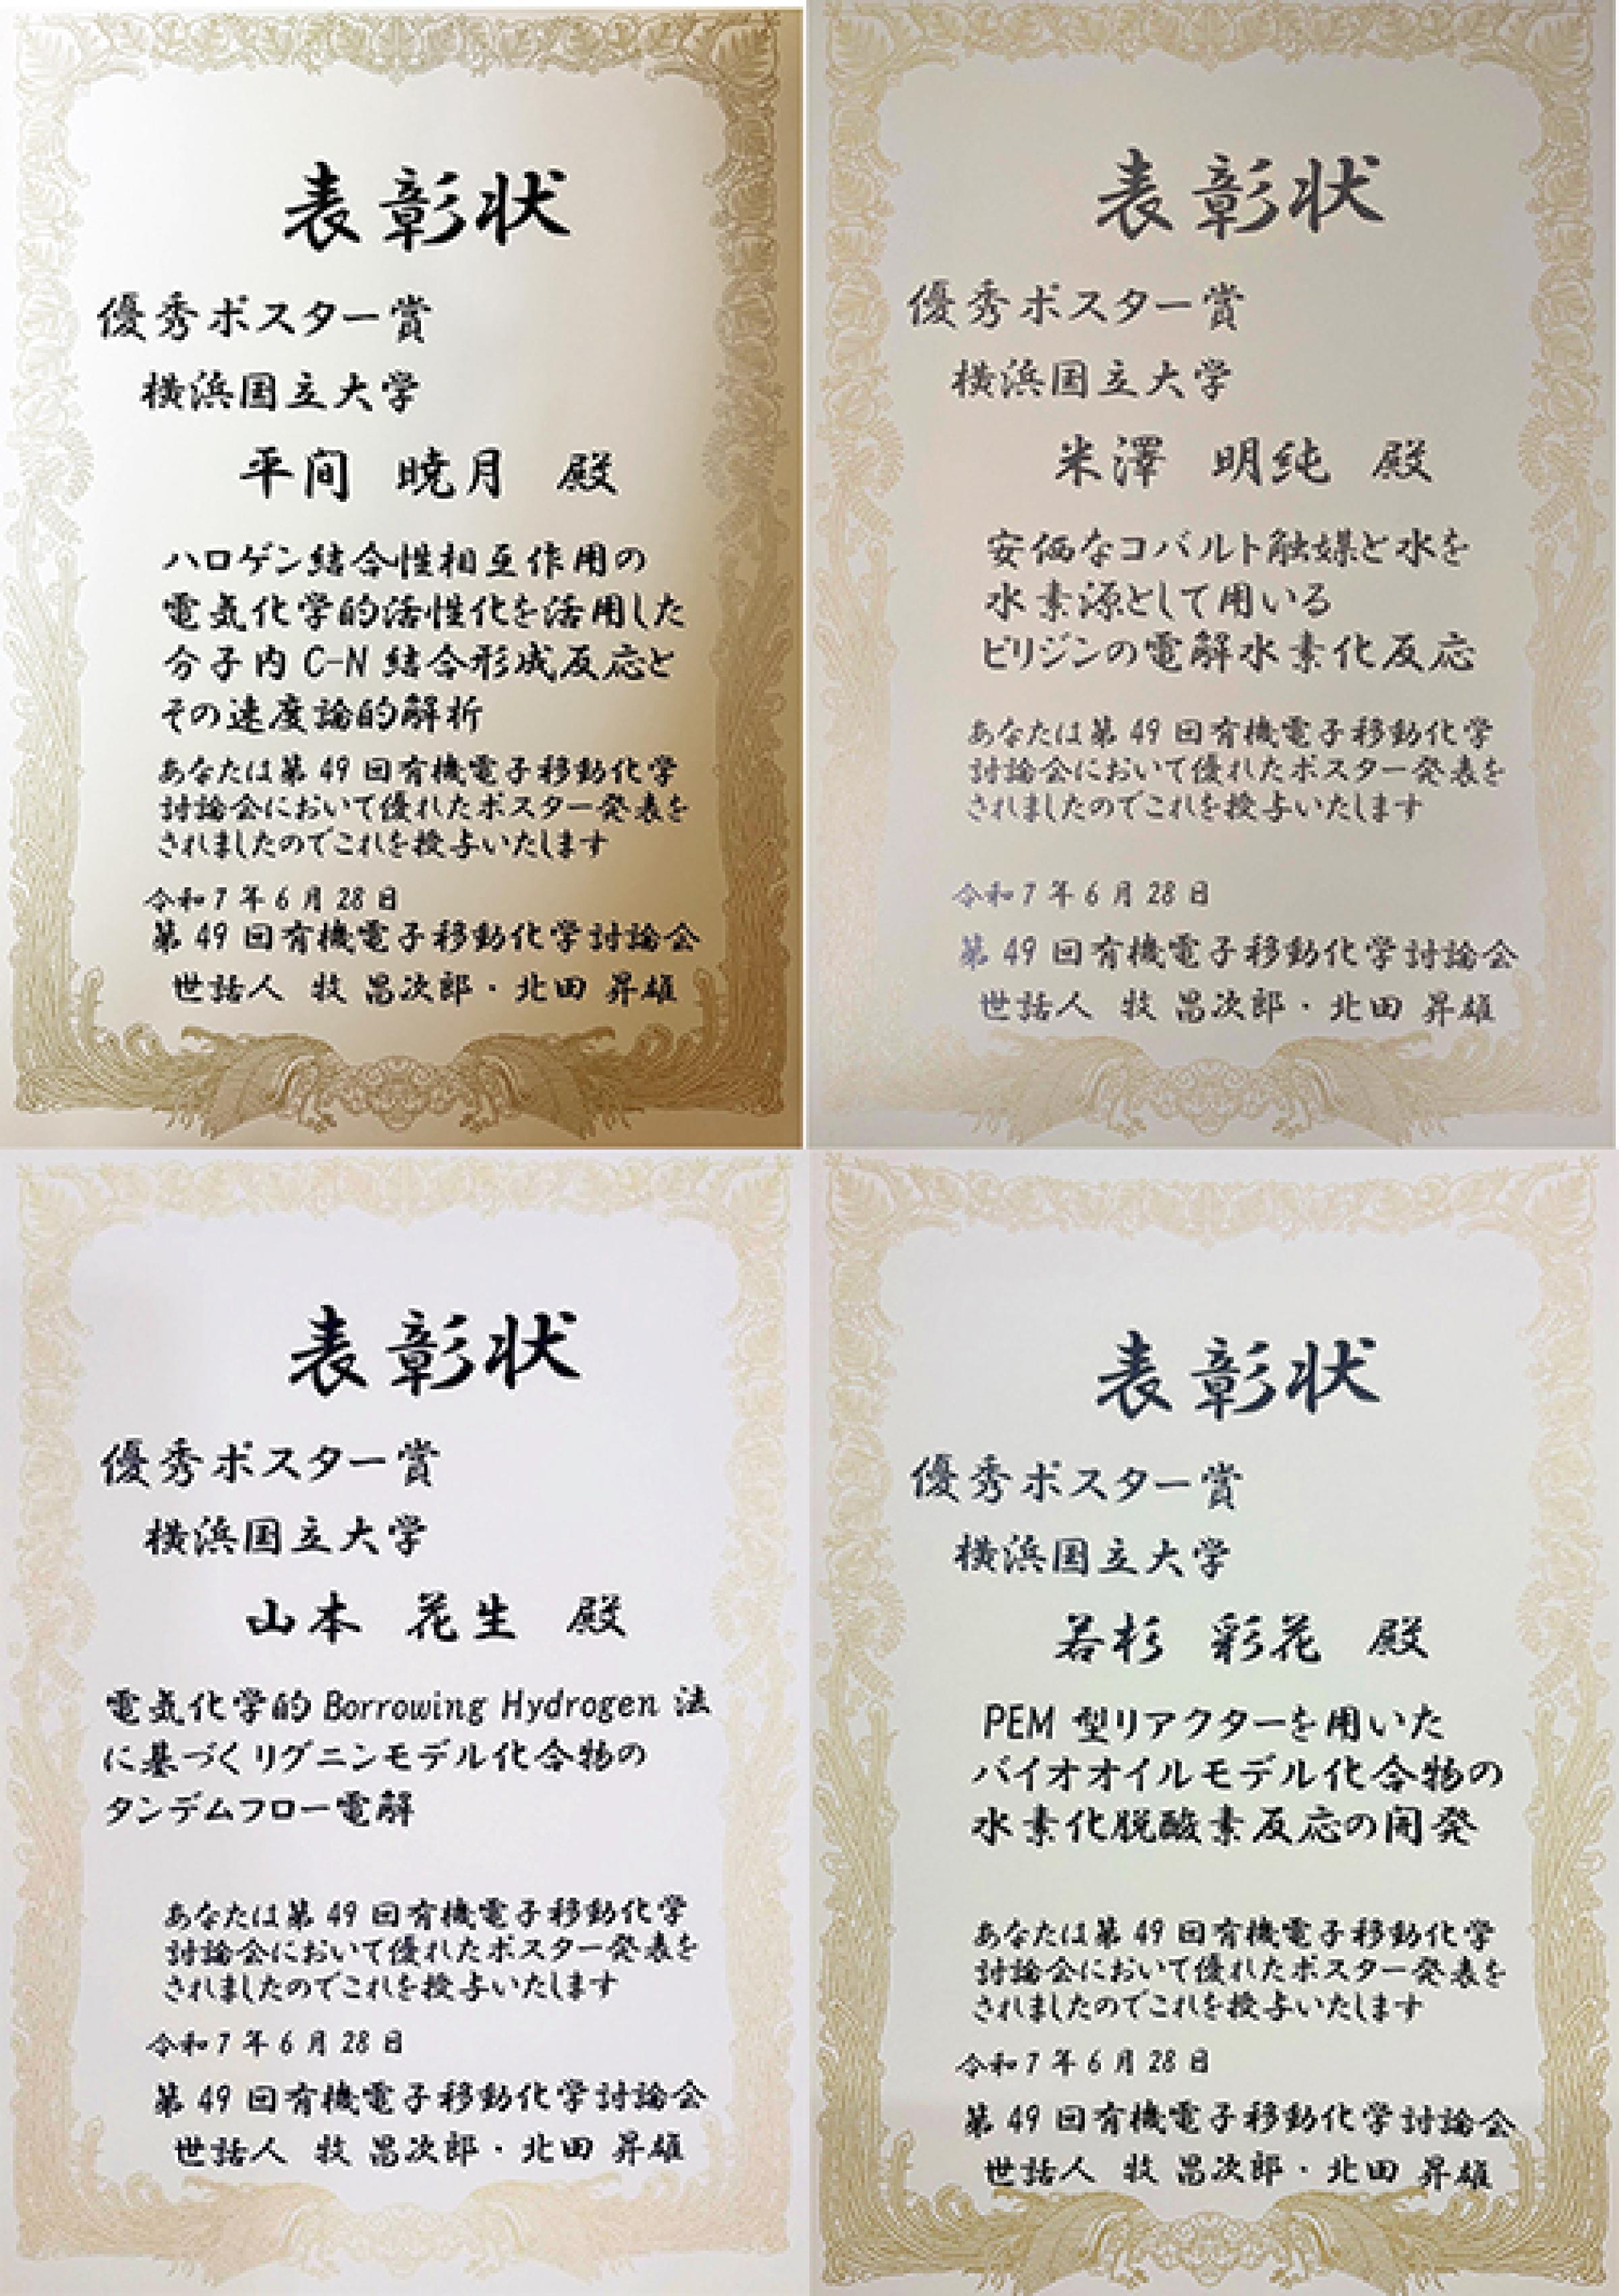 表彰状
優秀ポスター賞
横浜国立大学
平間 暁月 殿
ハロゲン結合性相互作用の
電気化学的活性化を活用した
分子内 C-N 結合形成反応と
その速度論的解析
あなたは第 49 回有機電子移動化学
討論会において優れたポスター発表を
されましたのでこれを授与いたします
令和 7 年 6 月 28 日
第 49 回有機電子移動化学討論会
世話人 牧 昌次郎・北田 昇雄
表彰状
優秀ポスター賞
横浜国立大学
米澤 明純 殿
安価なコバルト触媒と水を
水素源として用いる
ピリジンの電解水素化反応
あなたは第 49 回有機電子移動化学
討論会において優れたポスター発表を
されましたのでこれを授与いたします
令和 7 年 6 月 28 日
第 49 回有機電子移動化学討論会
世話人 牧 昌次郎・北田 昇雄
表彰状
優秀ポスター賞
横浜国立大学
山本 花生 殿
電気化学的 Borrowing Hydrogen 法
に基づくリグニンモデル化合物の
タンデムフロー電解
あなたは第 49 回有機電子移動化学
討論会において優れたポスター発表を
されましたのでこれを授与いたします
令和 7 年 6 月 28 日
第 49 回有機電子移動化学討論会
世話人 牧 昌次郎・北田 昇雄
表彰状
優秀ポスター賞
横浜国立大学
若杉 彩花 殿
PEM 型リアクターを用いた
バイオオイルモデル化合物の
水素化脱酸素反応の開発
あなたは第 49 回有機電子移動化学
討論会において優れたポスター発表を
されましたのでこれを授与いたします
令和 7 年 6 月 28 日
第 49 回有機電子移動化学討論会
世話人 牧 昌次郎・北田 昇雄